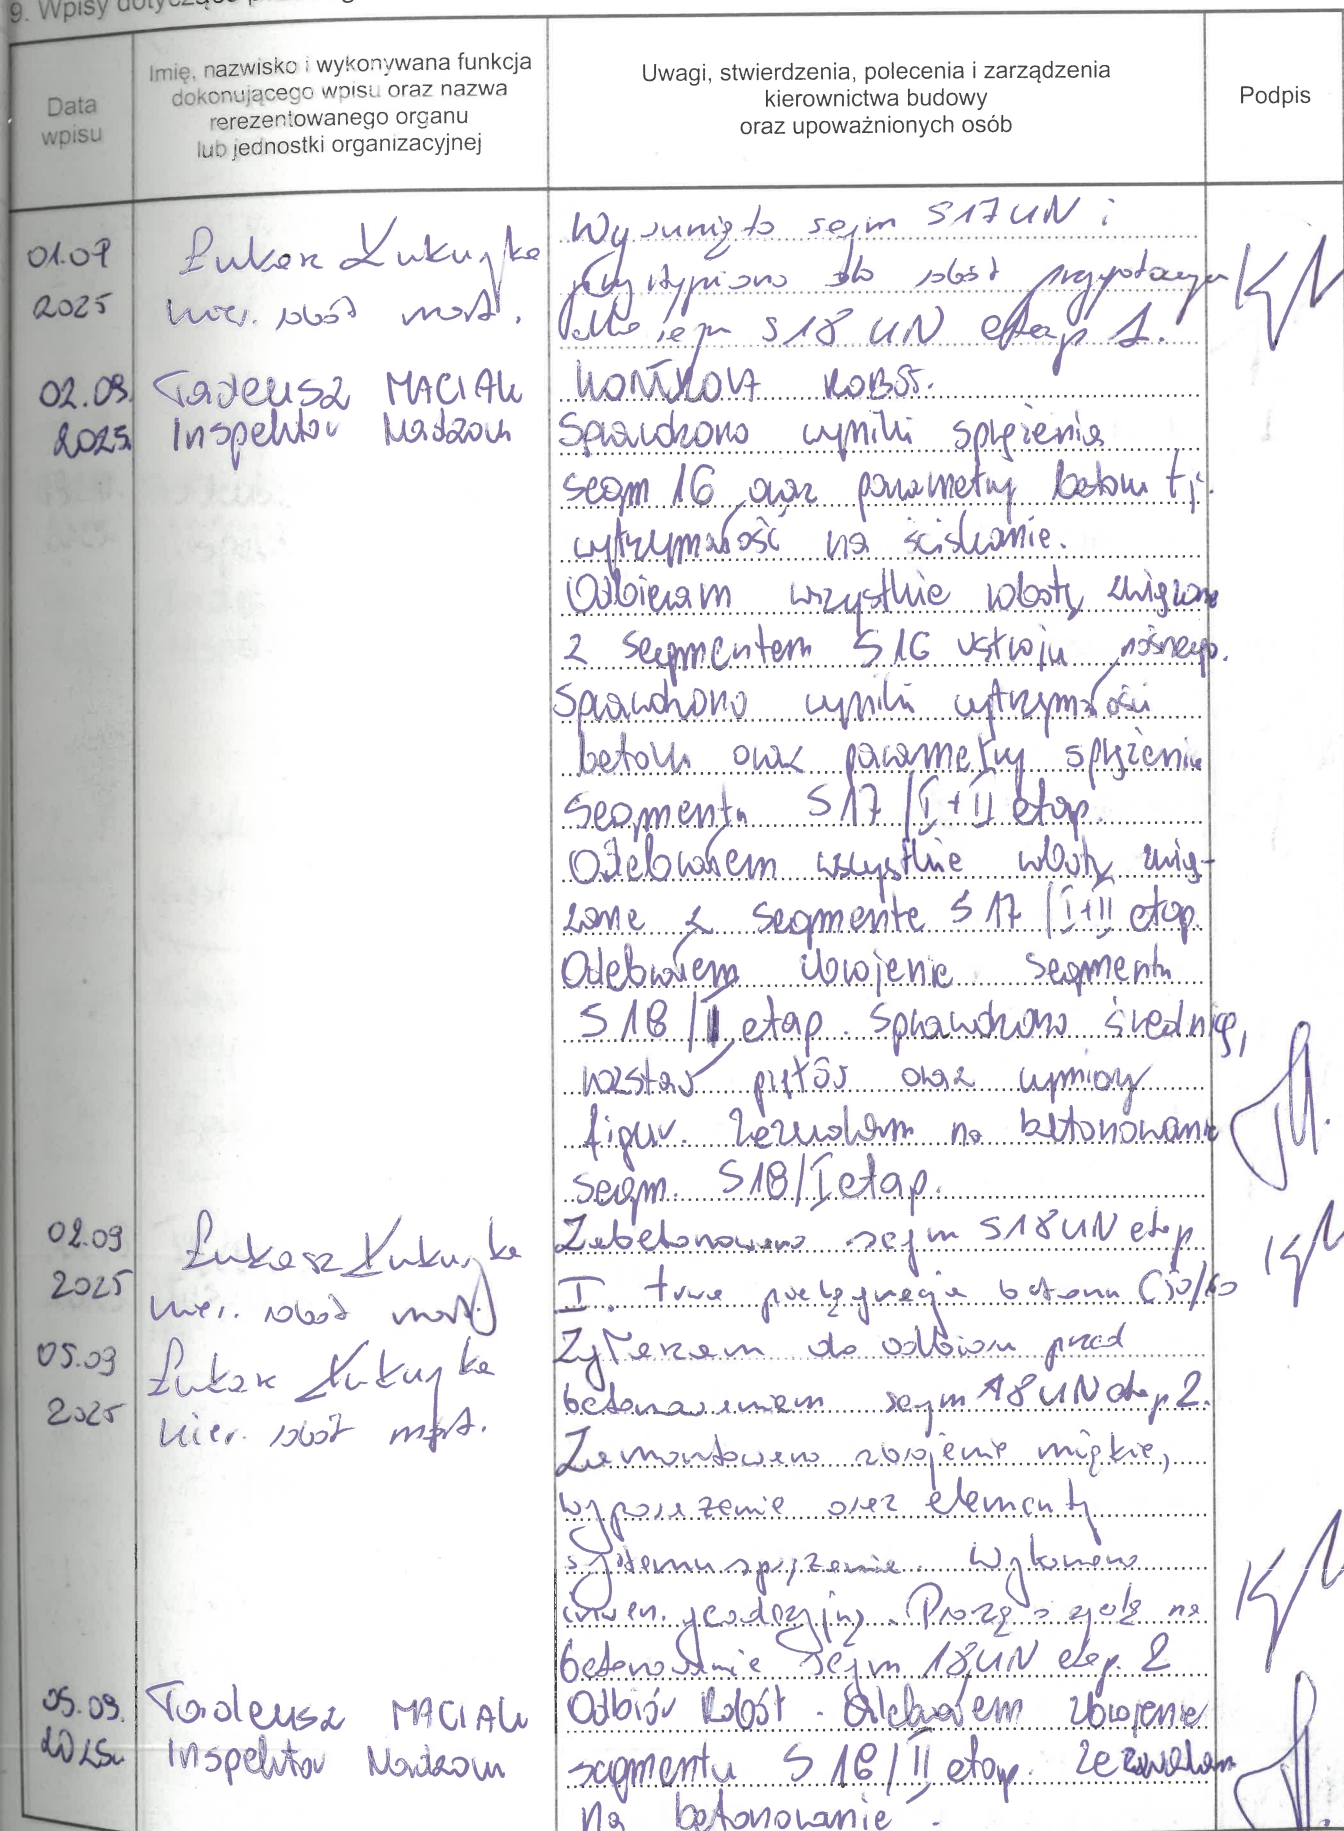 9. Wpisy dotyczące
Data
wpisu
Imię, nazwisko i wykonywana funkcja
dokonującego wpisu oraz nazwa
rerezentowanego organu
lub jednostki organizacyjnej
Uwagi, stwierdzenia, polecenia i zarządzenia
kierownictwa budowy
oraz upoważnionych osób
Podpis
01.09
2025
Łukasz
kier. robót most.
Wysunięto segm S17 UN i
przystąpiono do robót przygotowaw
dla segm S18 UN etap 1.
02.09.
2025
Tadeusz MACIAK
Inspektor Nadzoru
KONTROLA ROBÓT.
Sprawdzono wyniki sprężenia
segm 16 oraz parametry betonu tj.
wytrzymałość na ściskanie.
Odbieram wszystkie roboty związane
z segmentem S16 ustroju nośnego.
Sprawdzono wyniki wytrzymałości
betonu oraz parametry sprężenia
segmentu S17 / I + II etap.
Odebrałem wszystkie roboty zwią-
zane z segmente S17 / I+II etap.
Odebrałem zbrojenie segmentu
S18 / I etap. Sprawdzono średnicę,
rozstaw prętów oraz wymiary
figur. Zezwalam na betonowanie
segm. S18/I etap.
02.09
2025
Łukasz
kier. robót most.
Zabetonowano segm S18 UN etap
I. trwa pielęgnacja betonu C50/60
05.09
2025
Łukasz
kier. robót most.
Zgłaszam do odbioru przed
betonowaniem segm 18 UN etap 2.
Zamontowano zbrojenie miękkie,
wyposażenie oraz elementy
systemu sprężenia. Wykonano
inwen. geodezyjną. Proszę o zgodę na
betonowanie segm 18 UN etap. 2
05.09.
2025
Tadeusz MACIAK
Inspektor Nadzoru
Odbiór Robót. Odebrałem zbrojenie
segmentu S 18 / II etap. Zezwalam
na betonowanie.